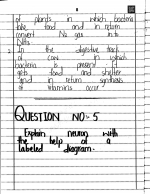 of plants in which bacteria
take food and in return
convert N₂ gas into
Nitts
2. In the digestive track
of cow in which
bacteria is present it
gets food and shelter
and in return synthesis
of vitamins occur
QUESTION NO:- 5
Explain neuron with
the help of a
labeled diagram.